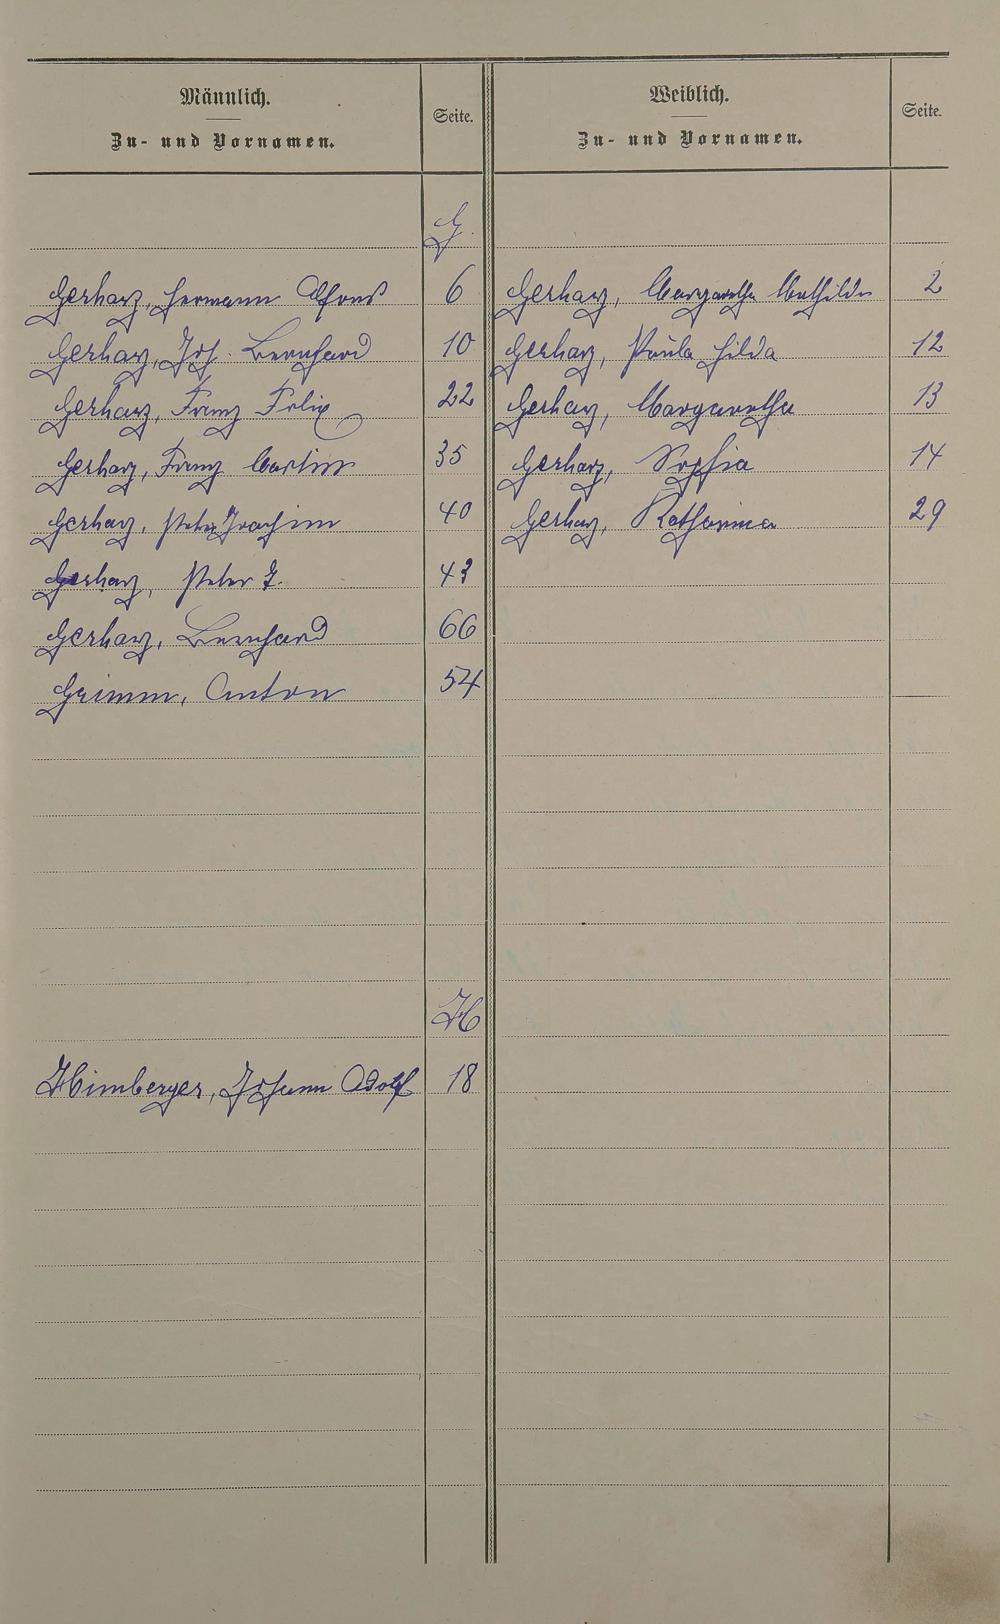 Männlich.
Zu- und Vornamen.
Seite.
Weiblich.
Zu- und Vornamen.
Seite.
G.
Gerharz, Hermann Alfons 6
Gerharz, Margaretha Mathilde 2
Gerharz, Jos. Bernhard 10
Gerharz, Paula Hilda 12
Gerharz, Franz Felix 22
Gerharz, Margaretha 13
Gerharz, Franz Martin 35
Gerharz, Sophia 14
Gerharz, Peter Joachim 40
Gerharz, Katharina 29
Gerharz, Peter J. 43
Gerharz, Bernhard 66
Grimm, Anton 54
H
Himberger, Johann Adolf 18